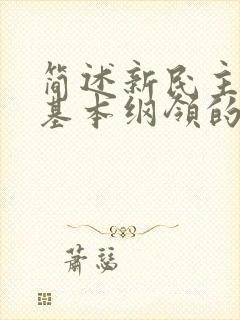 简述新民主
基本纲领的
萧瑟